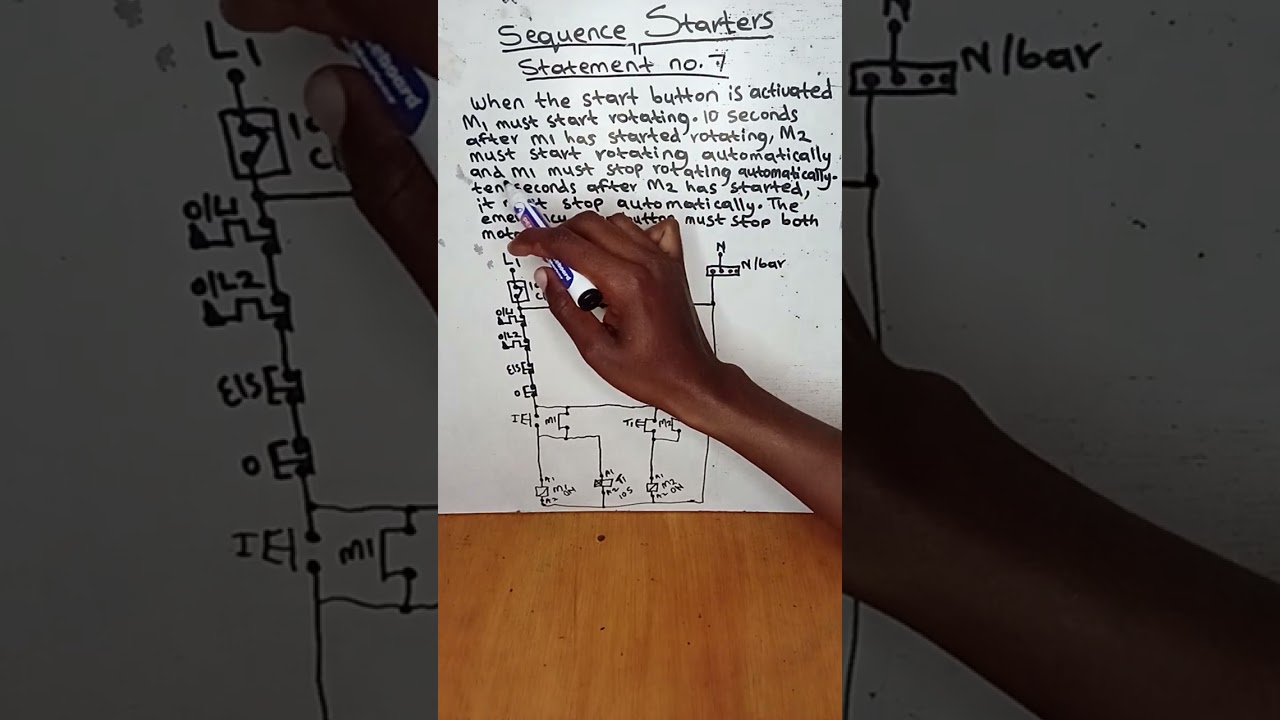 Sequence Starters
Statement no. 7
When the start button is activated
M1 must start rotating. 10 seconds
after m1 has started rotating, M2
must start rotating automatically
and m1 must stop rotating automatically.
ten seconds after M2 has started,
it stop automatically. The
button must stop both
L1
N
N/bar
O/L1
O/L2
E/S
O
I
M1
T1
M2
A1
M1
ON
A2
A1
T1
A2
10S
A1
M2
A2
ON